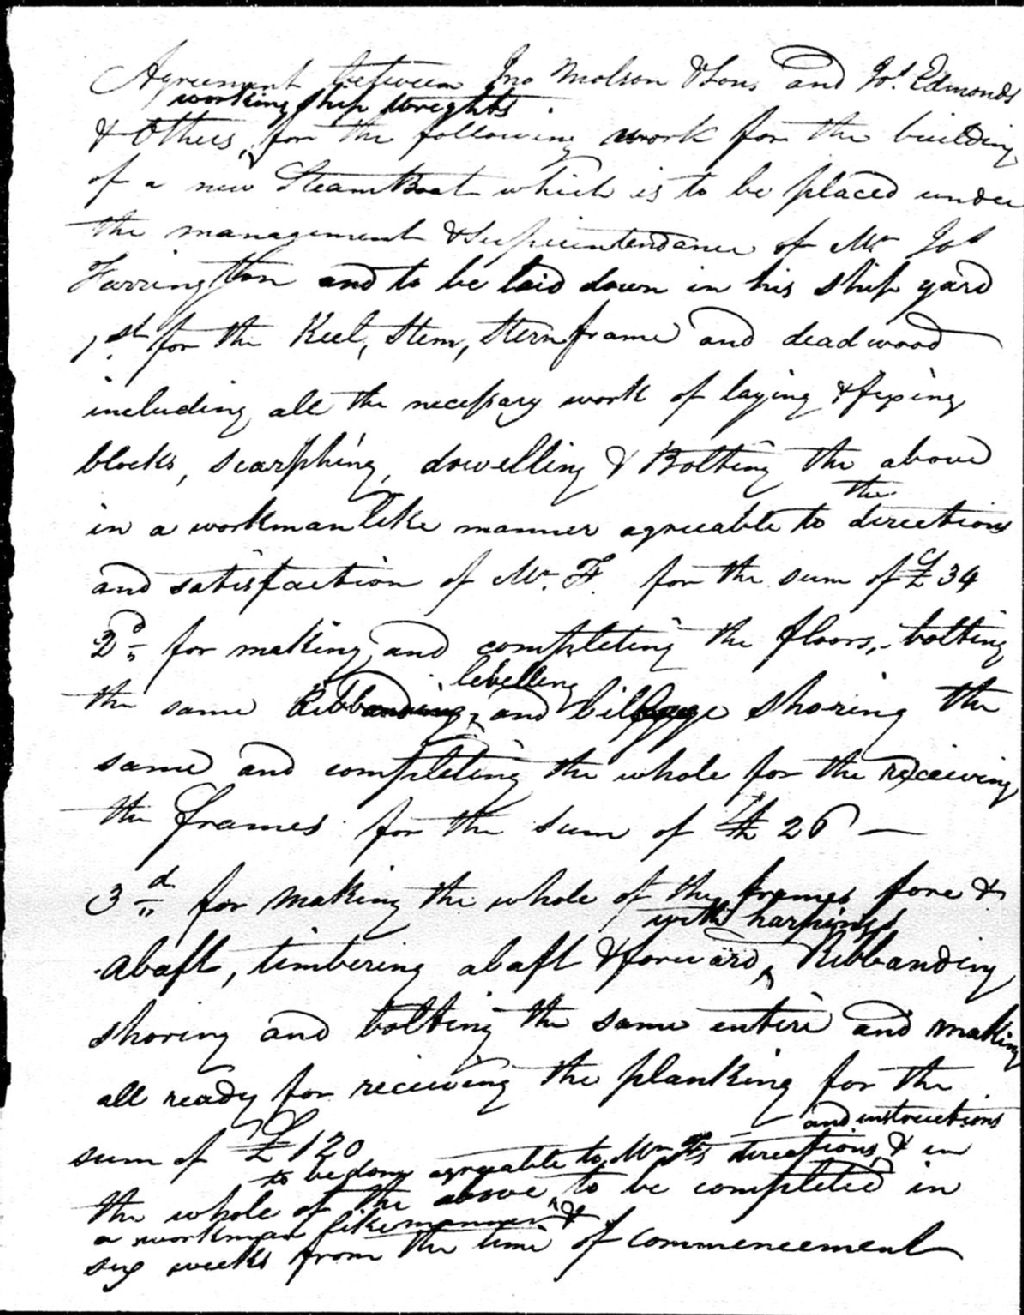 Agreement between Jno Molson & Sons and Jos. Edmonds
working ship wrights
& Others, for the following work for the building
of a new SteamBoat which is to be placed under
the management & Superintendance of Mr Jos
Farrington and to be laid down in his ship yard
1st for the Keel, Stem, Sternframe and deadwood
including all the necessary work of laying & fixing
blocks, scarphing, dowelling & Bolting the above
the
in a workmanlike manner agreeable to directions
and satisfaction of Mr. F. for the sum of £34
2d for making and completing the floors, bolting
levelling
the same Ribbanding, and bilge shoring the
same and completing the whole for the receiving
the frames for the sum of £ 26 —
3d for making the whole of the frames fore &
with harpings
abaft, timbering abaft & forward, Ribbanding
shoring and bolting the same entire and making
all ready for receiving the planking for the
and instructions
sum of £120
to be done agreeable to Mr F's directions, & in
the whole of the above, to be completed in
a workman like manner &
six weeks from the time of commencement